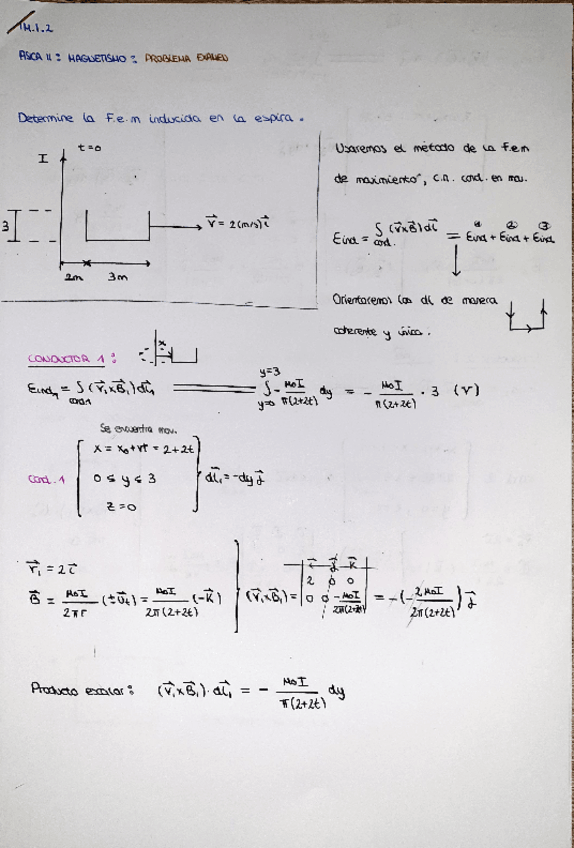 IM.1.2
FÍSICA II: MAGNETISMO: PROBLEMA EXAMEN
Determine la F.e.m inducida en la espira.
I
t=0
3
v⃗ = 2(m/s) i⃗
2m
3m
Usaremos el método de la f.e.m
de movimiento", c.a. cond. en mov.
Eind = ∫cond. (v⃗xB⃗)dl⃗ = Eind① + Eind② + Eind③
Orientaremos los dl⃗ de manera
coherente y única.
CONDUCTOR 1:
x
Eind₁ = ∫cond1 (v⃗₁xB⃗₁)dl⃗₁ = ∫y=0 y=3 - μ₀I/π(2+2t) dy = - μ₀I/π(2+2t) · 3 (V)
Se encuentra mov.
Cond. 1
x = x₀+vt = 2+2t
0 ≤ y ≤ 3
z = 0
dl⃗₁ = -dy j⃗
v⃗₁ = 2i⃗
B⃗ = μ₀I/2πr (±u⃗t) = μ₀I/2π(2+2t) (-k⃗)
(v⃗₁xB⃗₁) = | i⃗ j⃗ k⃗ | 2 0 0 | 0 0 -μ₀I/2π(2+2t) | = -(-2μ₀I/2π(2+2t)) j⃗
Producto escalar: (v⃗₁xB⃗₁)·dl⃗₁ = - μ₀I/π(2+2t) dy